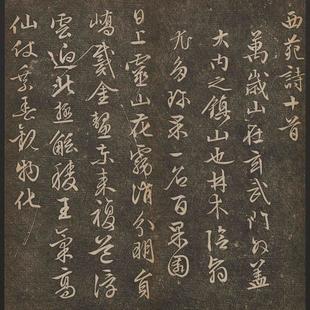 西苑詩十首
萬歲山在玄武門外蓋
大內之鎮山也林木陰翳
尤多珍果一名百果園
日上靈山花霧消分明員
嶠戴金鰲東來複道浮
雲迥北極觚稜王氣高
仙仗乘春觀物化